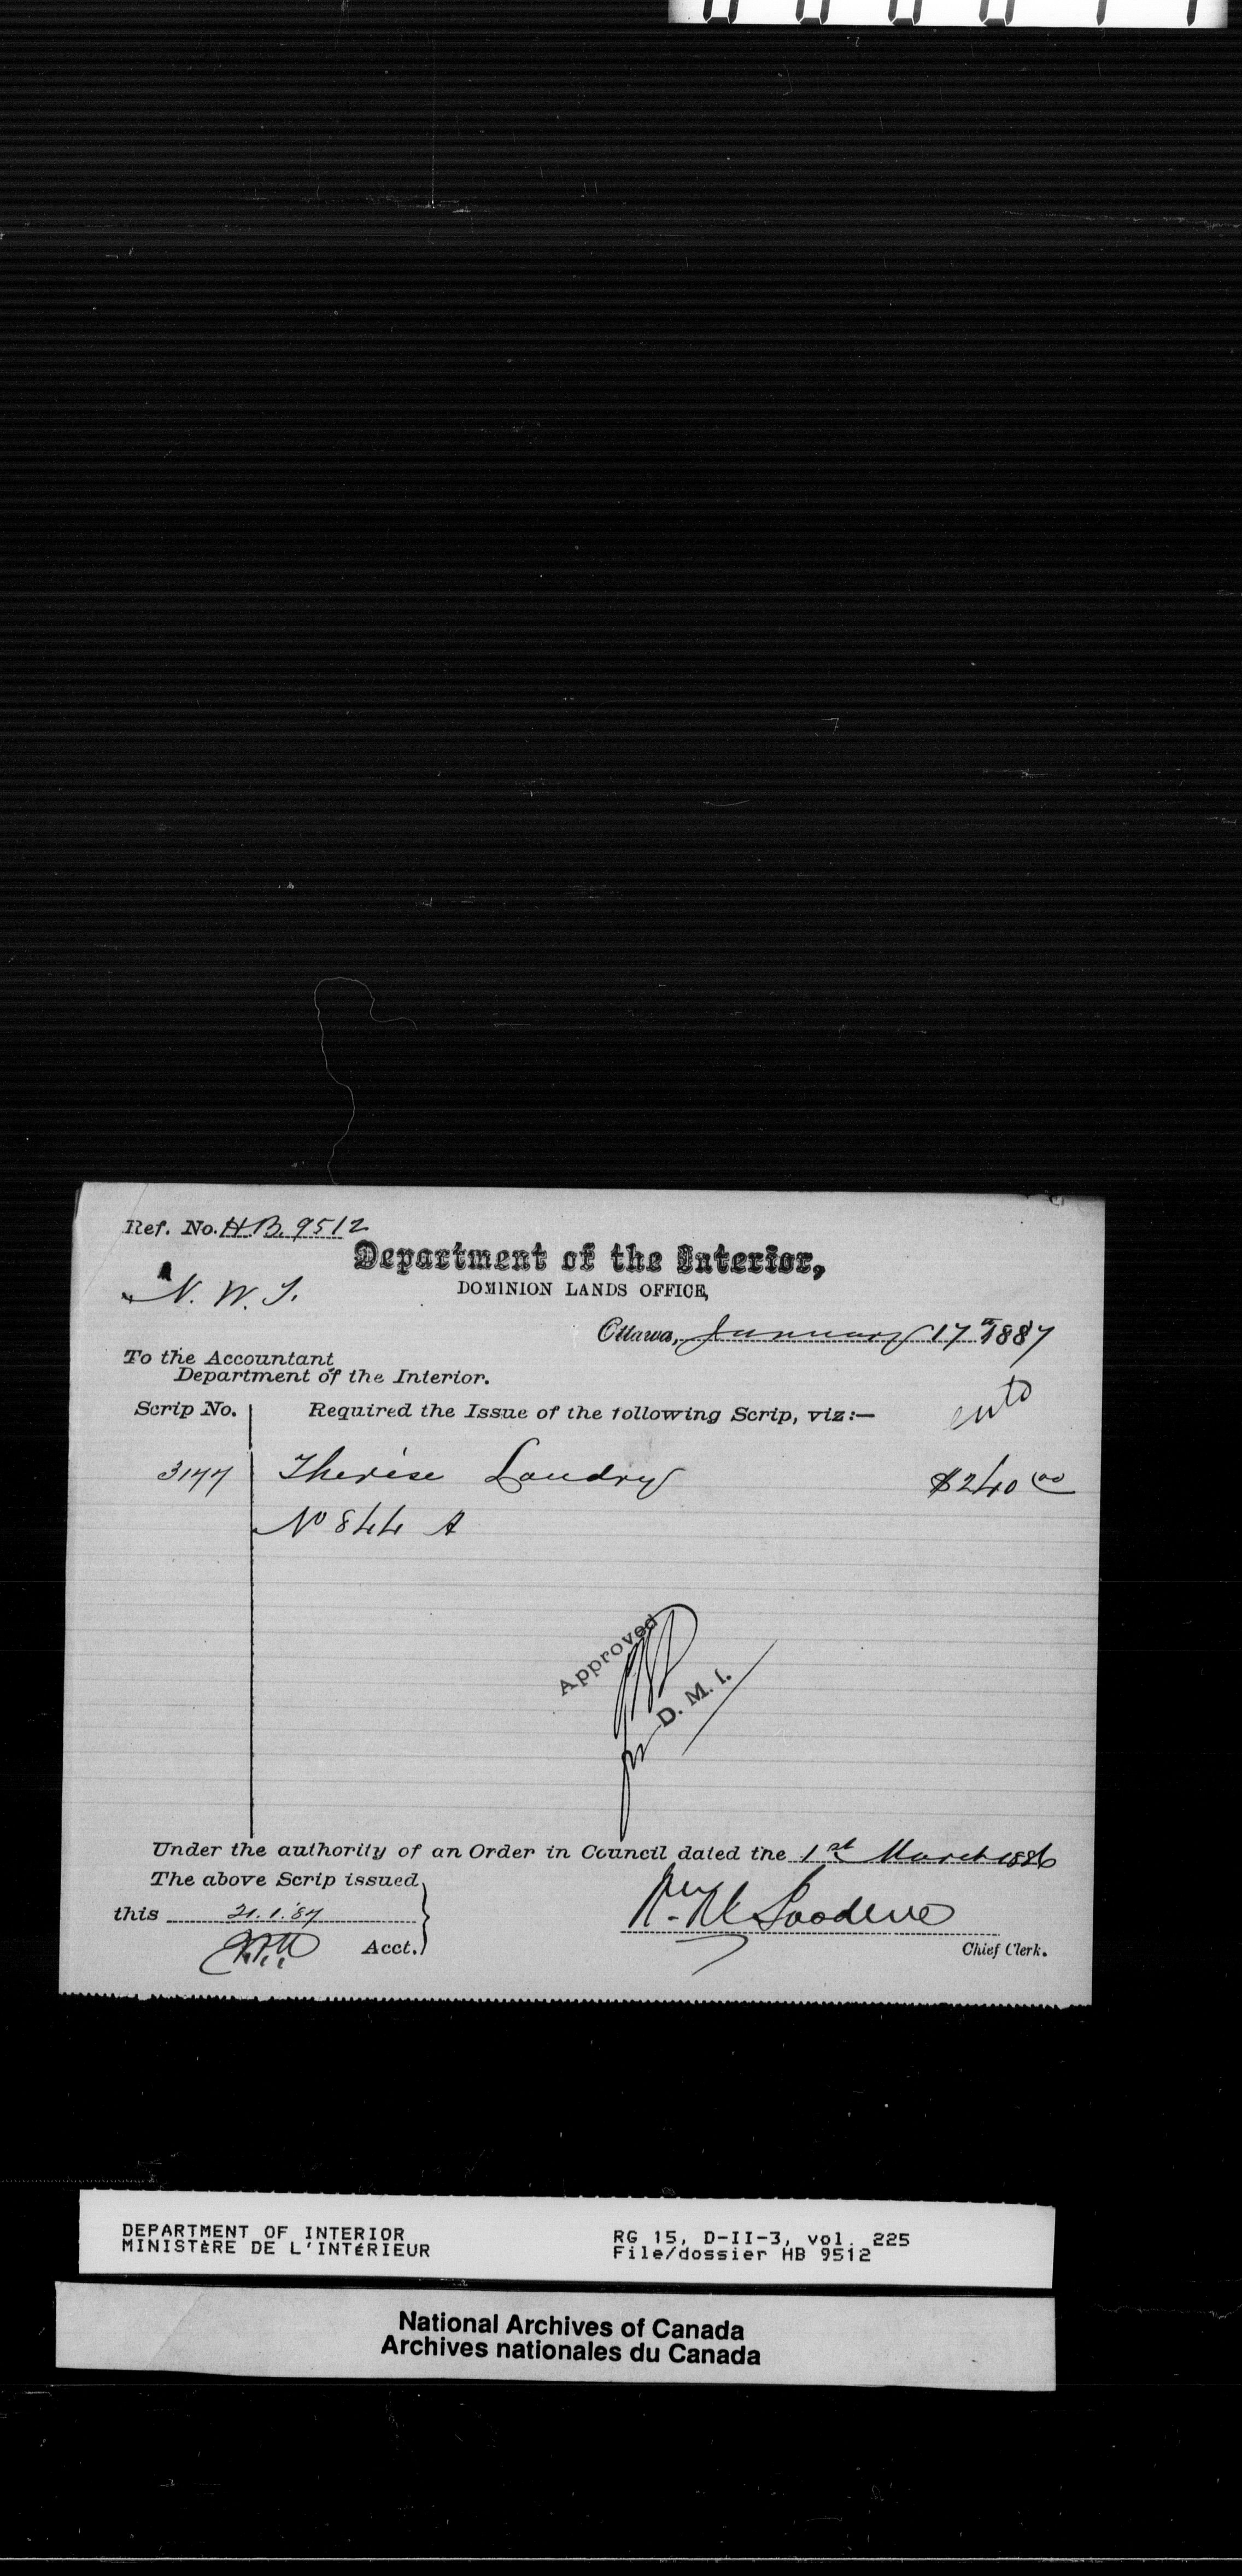 Ref. No. H.B. 9512
Department of the Interior,
N. W. T.
DOMINION LANDS OFFICE,
Ottawa, January 17th 1887
To the Accountant
Department of the Interior.
Scrip No.
Required the Issue of the following Scrip, viz:—
entd
3177 Therèse Landry $240 00
No 844 A
Approved
for D. M. I.
Under the authority of an Order in Council dated the 1st March 1886
The above Scrip issued
this 21.1.'87
Acct.
Chief Clerk.
DEPARTMENT OF INTERIOR
MINISTÈRE DE L'INTÉRIEUR
RG 15, D-II-3, vol. 225
File/dossier HB 9512
National Archives of Canada
Archives nationales du Canada